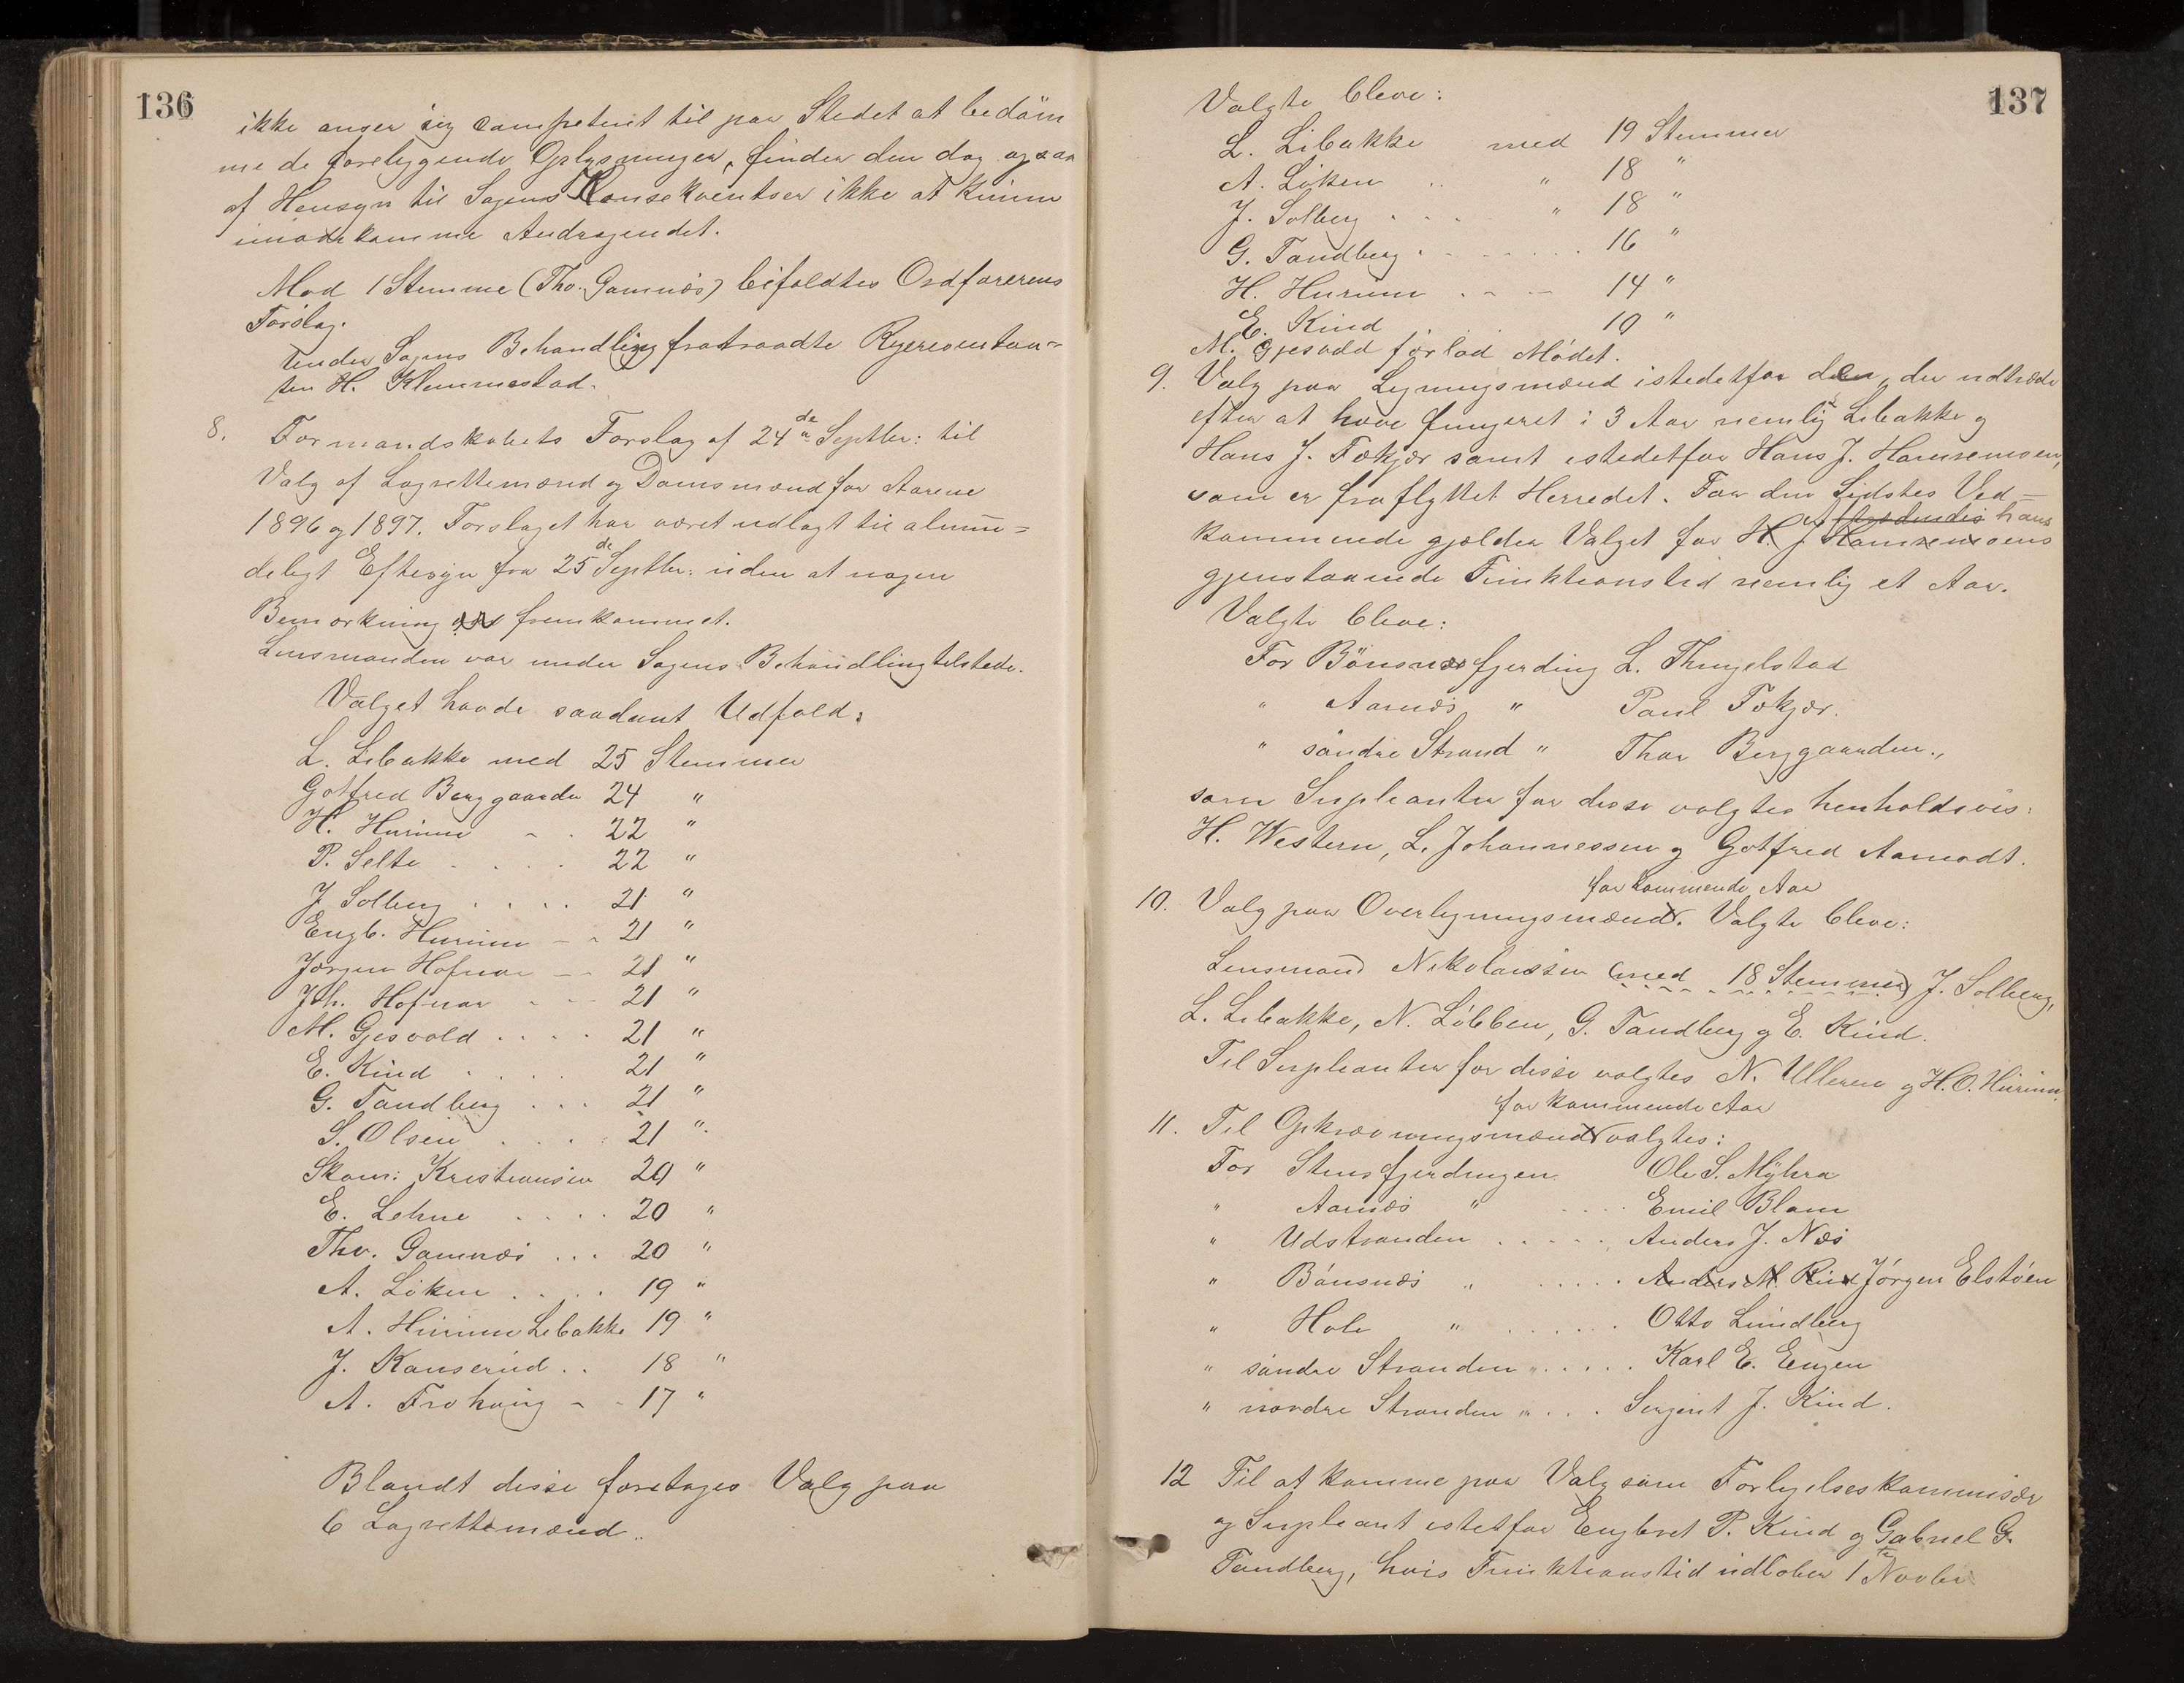 136
ikke anser sig competent til paa Stedet at bedöm
me de foreliggende Oplysninger, finder den dog ogsaa
af Hensyn til Sagens Konsekventser ikke at kunne
imødekomme Andragendet.
Mod 1 Stemme (Tho. Gomnæs) bifaldtes Ordførerens
Forslag.
Under Sagens Behandling fratraadte Repræsentan-
ten H. Klemmestad.
8. Formandskabets Forslag af 24de Septbr: til
Valg af Lagrettemænd og Domsmænd for Aarene
1896 og 1897. Forslaget har været udlagt til almin=
deligt Eftersyn fra 25de Septbr: uden at nogen
Bemærkning er fremkommet.
Lensmanden var under Sagens Behandling tilstede.
Valget havde saadant Udfald:
L. Libakke med 25 Stemmer
Gotfred Berggaarden 24 "
H. Hurum - . 22 "
P. Selte . . . . 22 "
J. Solberg . . . . 21 "
Engb. Hurum - - 21 "
Jørgen Hofnar - - 21 "
Joh. Hofnar - - - 21 "
M. Gjesvold . . . . 21 "
E. Kind . . . . 21 "
G. Tandberg . . . 21 "
S. Olsen . . . . 21 "
Skom: Kristiansen 20 "
E. Lehne . . . . 20 "
Tho. Gomnæs . . . 20 "
A. Löken . . . . 19 "
A. Hurum Libakke 19 "
J. Kanserud . . 18 "
A. Frohaug - - 17 "
Blandt disse foretages Valg paa
6 Lagrettemænd.
137
Valgte bleve:
L. Libakke med 19 Stemmer
A. Löken . . " 18 "
J. Solberg . . . . " 18 "
G. Tandberg . . . . . . . 16 "
H. Hurum . - - 14 "
E. Kind 10 "
M. Gjesvold forlod Mødet.
9. Valg paa Ligningsmænd istedetfor dem, der udtræde
efter at have fungeret i 3 Aar nemlig L. Libakke og
Hans J. Fekjær samt istedetfor Hans J. Hamremoen,
som er fraflyttet Herredet. For den Sidstes Ved-
hans
kommende gjælder Valget for H. J. Hamremoens
gjenstaaende Funktionstid nemlig et Aar.
Valgte bleve:
For Bönsnæs fjerding L. Thingelstad
" Aarnæs " Paul Fekjær.
" söndre Strand " Thor Berggaarden.,
som Supleanter for disse valgtes henholdsvis:
H. Western, L. Johannessen og Gotfred Aamodt.
for kommende Aar
10. Valg paa Overligningsmænd. Valgte bleve:
Lensmand Nikolaisen (med 18 Stemmer) J. Solberg,
L. Libakke, N. Löbben, G. Tandberg og E. Kind.
Til Supleanter for disse valgtes N. Ulleren og H.O. Hurum.
for kommende Aar
11. Til Opkrævningsmænd valgtes:
For Stensfjerdingen Ole S. Myhra
" Aarnæs " . . . . Emil Blom
" Udstranden . . . . . Anders J. Næs
" Bönsnæs " . . . . . Anders M. Kind Jörgen Elstöen
" Hole " . . . . . . Otto Lundberg
" söndre Stranden " . . . . . Karl E. Engen
" nordre Stranden " . . . Sergent J. Kind.
12 Til at komme paa Valg som Forligelseskommisær
og Supleant istetfor Engebret P. Kind og Gabriel G.
Tandberg, hvis Funktionstid udlöber 1te Novbr